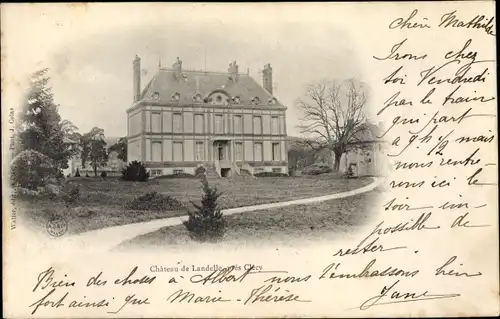 Chère Mathilde
irons chez
toi Vendredi
par le train
qui part
à 9h 1/2 mais
nous rentre
rons ici le
soir impossible de
rester.
Château de Landelle près Clécy
Bien des choses à Albert nous t'embrassons bien
fort ainsi que Marie-Thérèse
Jane